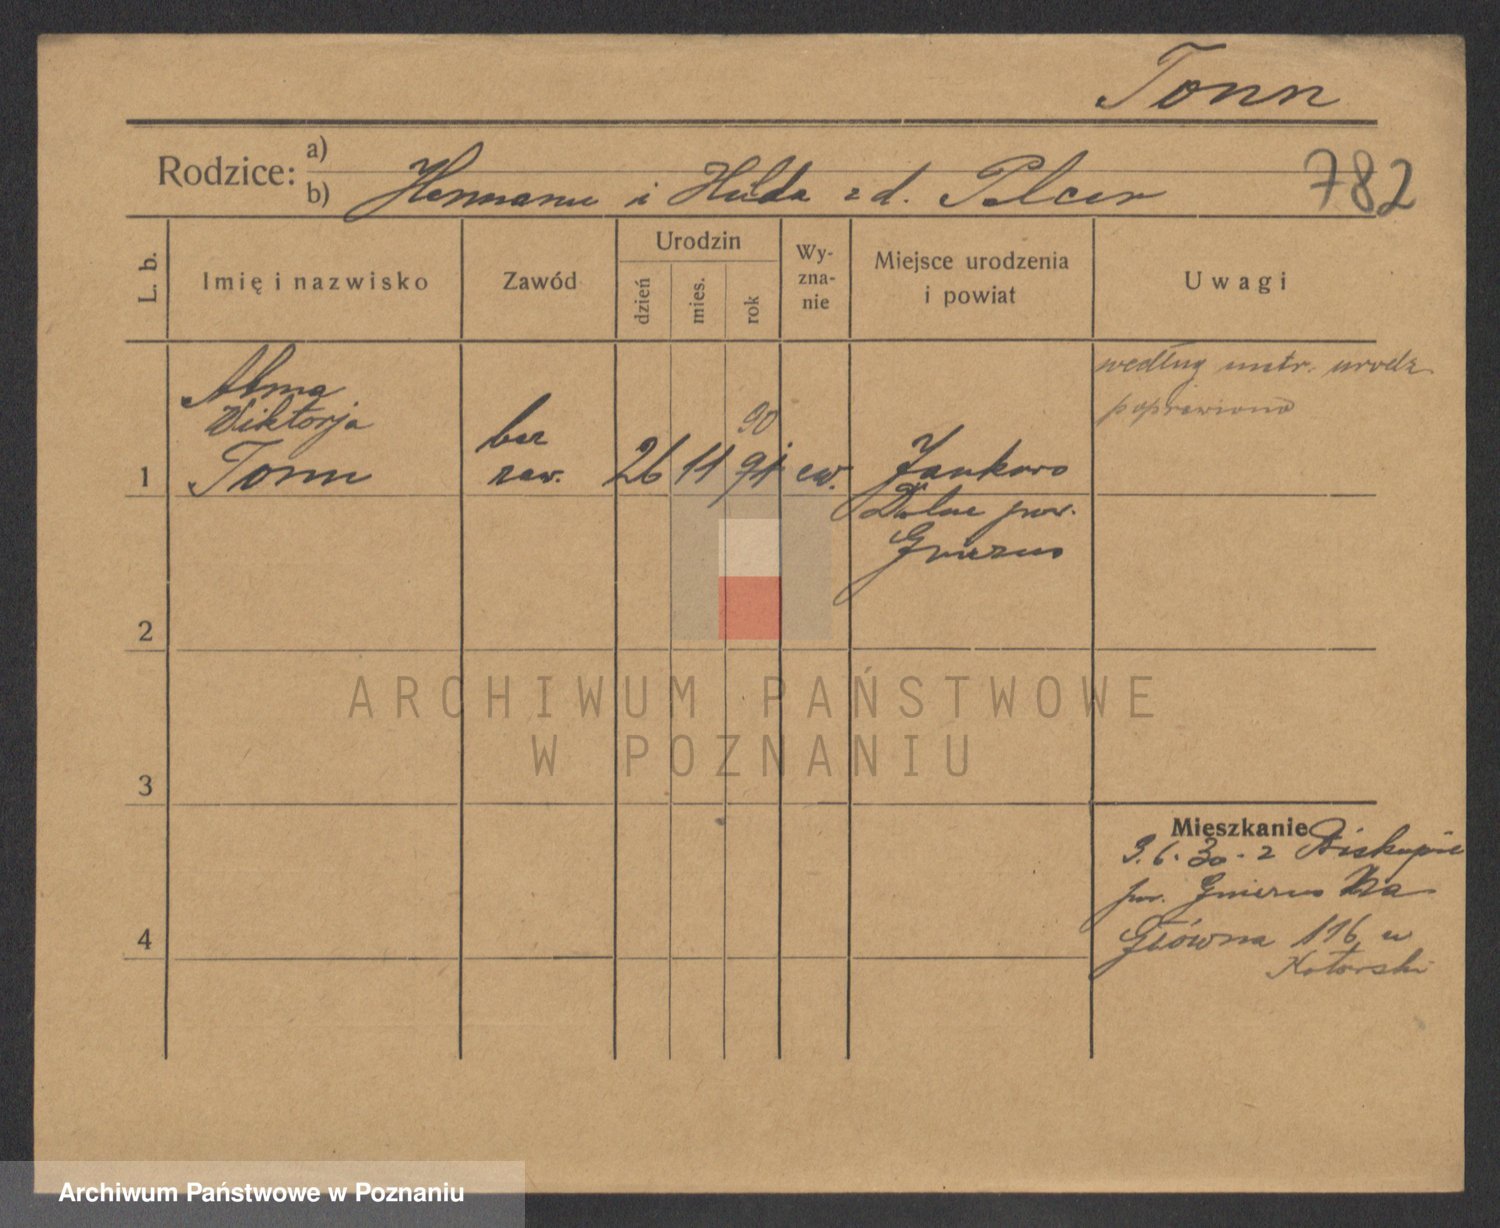 Tonn
Rodzice: a)
b) Hermann i Hulda z d. Pelcer
782
L. b.
Imię i nazwisko
Zawód
Urodzin
dzień
mies.
rok
Wy-
zna-
nie
Miejsce urodzenia
i powiat
Uwagi
Alma
Wiktorja
1 Tonn
bez
zaw.
26 11 91
90
ew.
Jankowo
Dolne pow.
Gniezno
według metr. urodz.
poprawiono
2
3
4
Mieszkanie
3.6.30 - z Biskupie
pow. Gniezno
Główna 116, u
Kotorski
ARCHIWUM PAŃSTWOWE
W POZNANIU
Archiwum Państwowe w Poznaniu